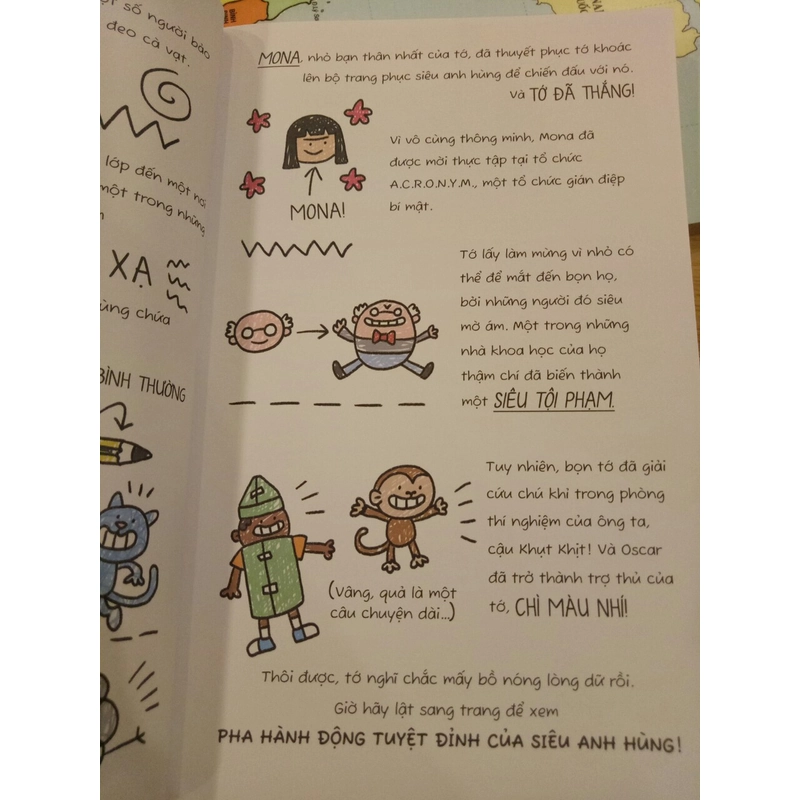 số người bảo
đeo cà vạt.
lớp đến một nơi
một trong những
XẠ
chứa
BÌNH THƯỜNG
MONA, nhỏ bạn thân nhất của tớ, đã thuyết phục tớ khoác
lên bộ trang phục siêu anh hùng để chiến đấu với nó.
Và TỚ ĐÃ THẮNG!
Vì vô cùng thông minh, Mona đã
được mời thực tập tại tổ chức
A.C.R.O.N.Y.M., một tổ chức gián điệp
bí mật.
MONA!
Tớ lấy làm mừng vì nhỏ có
thể để mắt đến bọn họ,
bởi những người đó siêu
mờ ám. Một trong những
nhà khoa học của họ
thậm chí đã biến thành
một SIÊU TỘI PHẠM.
Tuy nhiên, bọn tớ đã giải
cứu chú khỉ trong phòng
thí nghiệm của ông ta,
cậu Khụt Khịt! Và Oscar
đã trở thành trợ thủ của
tớ, CHÌ MÀU NHÍ!
(Vâng, quả là một
câu chuyện dài...)
Thôi được, tớ nghĩ chắc mấy bồ nóng lòng dữ rồi.
Giờ hãy lật sang trang để xem
PHA HÀNH ĐỘNG TUYỆT ĐỈNH CỦA SIÊU ANH HÙNG!